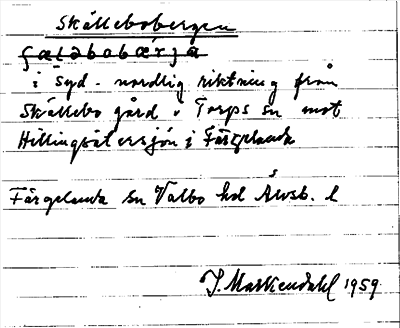 Skällebobergen
i syd-nordlig riktning från
Skällebo gård i Torps sn mot
Hillingsätersjön i Färgelanda
Färgelanda sn Valbo hd Älvsb. l
J. Markendahl 1959.